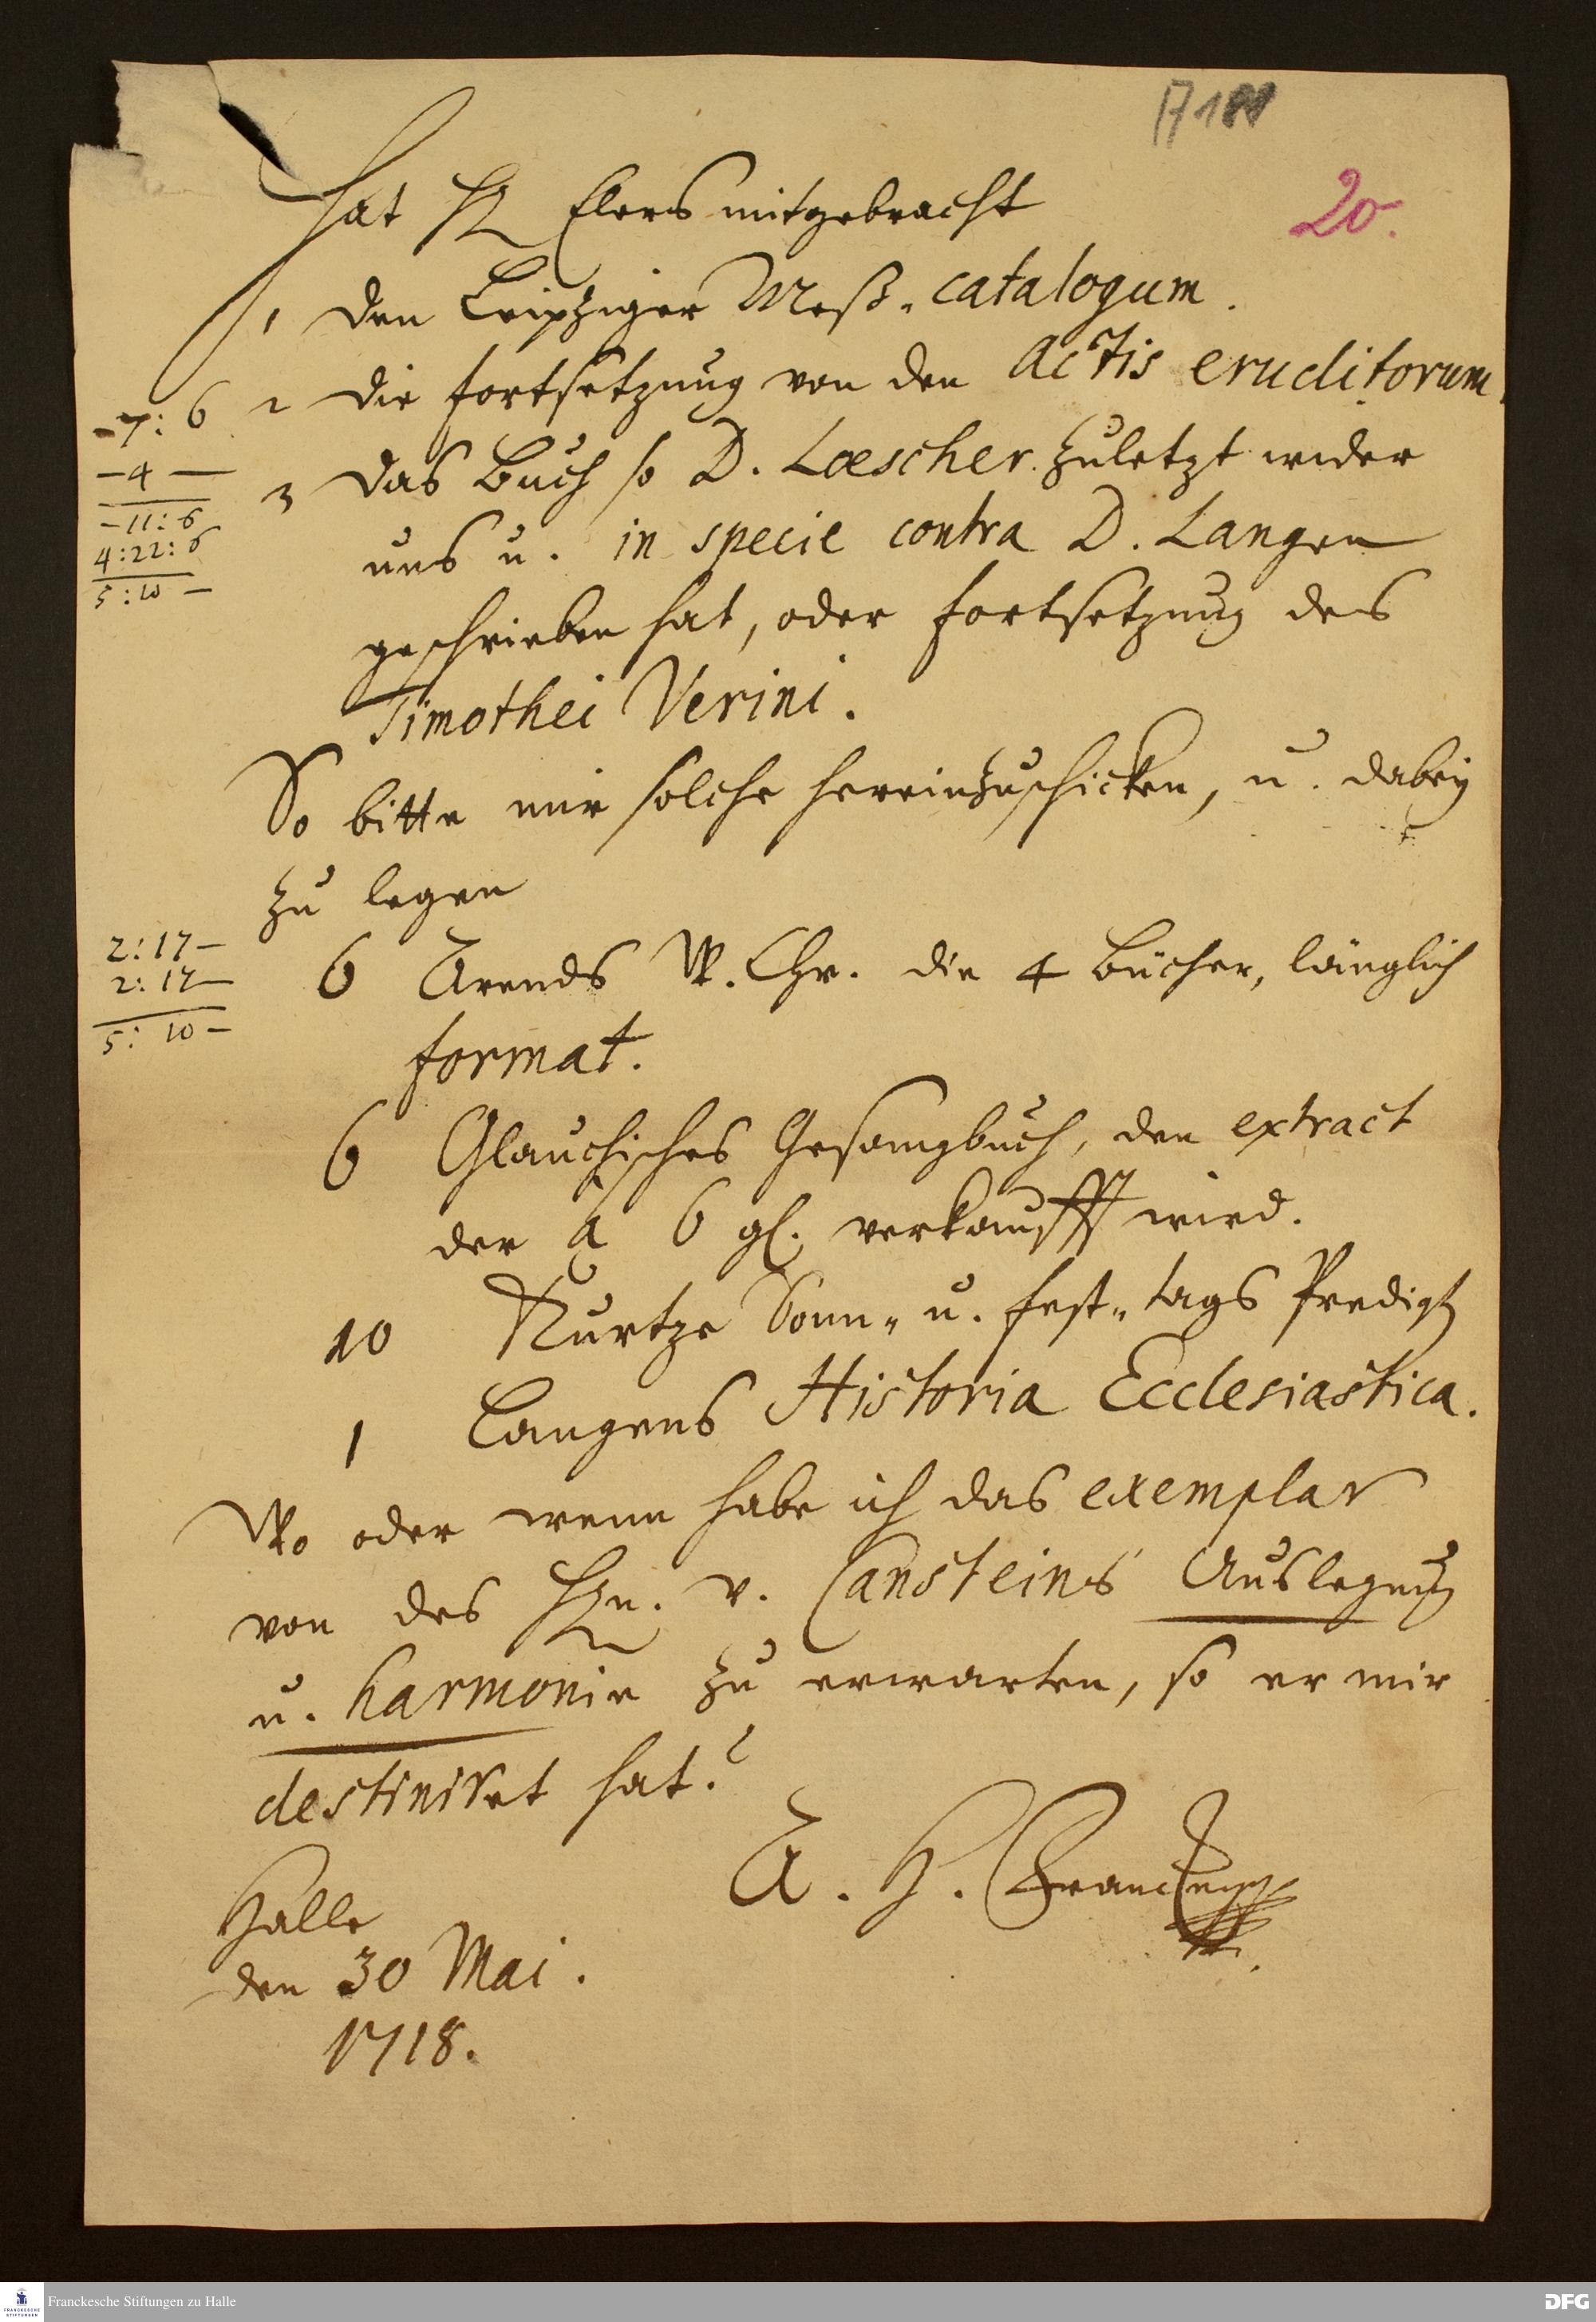 17188
20.
Hat H Elers mitgebracht
1 den Leipziger Meß- catalogum.
2 die fortsetzung von den Actis eruditorum.
3 das Buch so D. Loescher zuletzt wider
uns u. in specie contra D. Langen
geschrieben hat, oder fortsetzung des
Timothei Verini.
-7: 6
-4 —
-11: 6
4:22: 6
5:10 —
So bitte mir solche hereinzuschicken, u. dabey
zu legen
6 Arends W. Chr. die 4 Bücher, länglich
format.
2:17-
2:17-
5: 10-
6 Glauchisches Gesangbuch, den extract
der a 6 gl. verkaufft wird.
10 Kurtze Sonn- u. fest-tags Predigt
1 Langens Historia Ecclesiastica.
Wo oder wenn habe ich das exemplar
von des Hn. v. Cansteins Auslegung
u. harmonie zu erwarten, so er mir
destiniret hat?
A. H. Francke
Halle
den 30 Mai.
1718.
Franckesche Stiftungen zu Halle
DFG